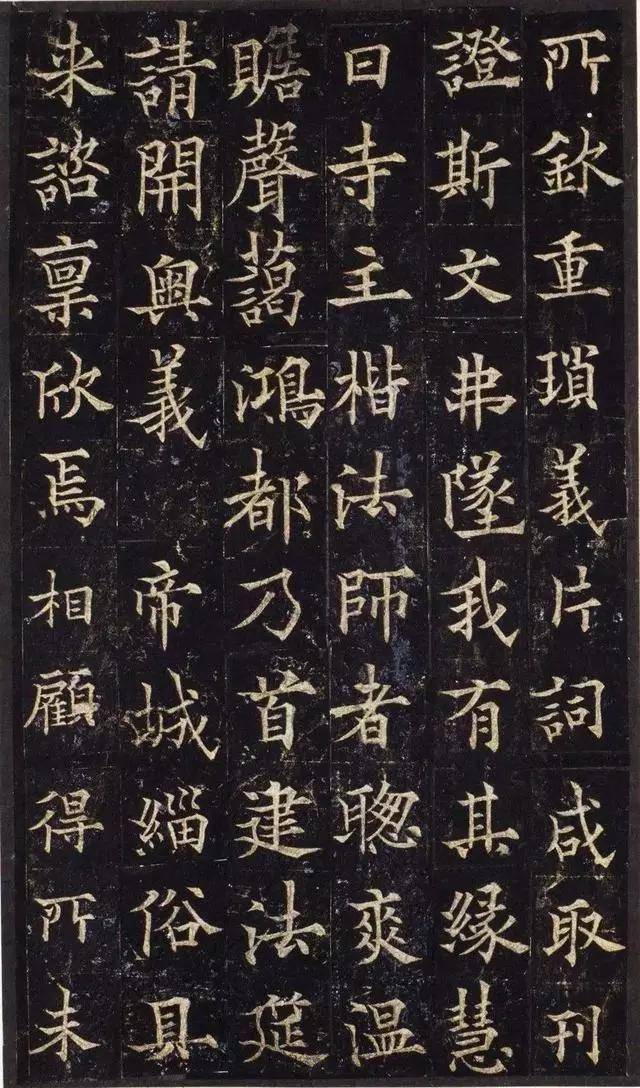 所欽重瑣義片詞咸取刊
證斯文弗墜我有其緣慧
日寺主楷法師者聰爽溫
贍聲藹鴻都乃首建法莚
請開奧義 帝城緇俗具
来諮稟欣焉相顧得所未